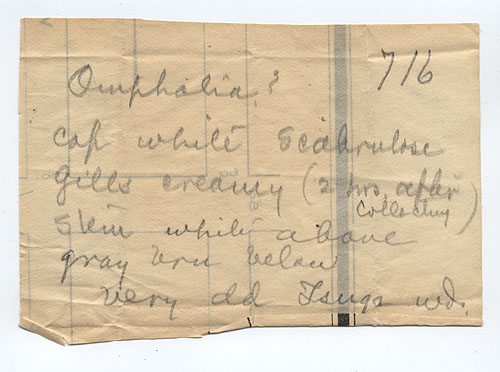 716
Omphalia?
Cap white Scabrulose
Gills creamy (2 hrs. after
collecting)
Stem white above
gray brn below
very old Tsuga wd.